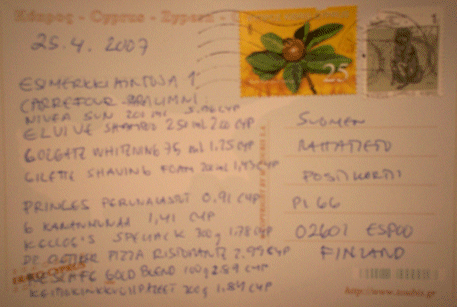 Κύπρος - Cyprus - Zypern -
25.4.2007
25
1
ESIMERKKIHINTOJA 1
CARREFOUR
NIVEA SUN 200 ML CYP
ELVIVE SHAMPOO 250 ml CYP
COLGATE WHITENING 75 ml 1.25 CYP
GILETTE SHAVING FOAM 200 ml CYP
PRINGLES PERUNALASTUT 0,91 CYP
6 KANANMUNAA 1,41 CYP
KELLOG'S SPECIAL K 300g 1.78 CYP
DR OETKER PIZZA RISTORANTE 2.99 CYP
NESCAFE GOLD BLEND 100g 2.59 CYP
200g 1,84 CYP
SUOMEN
RAHATIETO
POSTIKORTTI
PL 66
02601 ESPOO
FINLAND